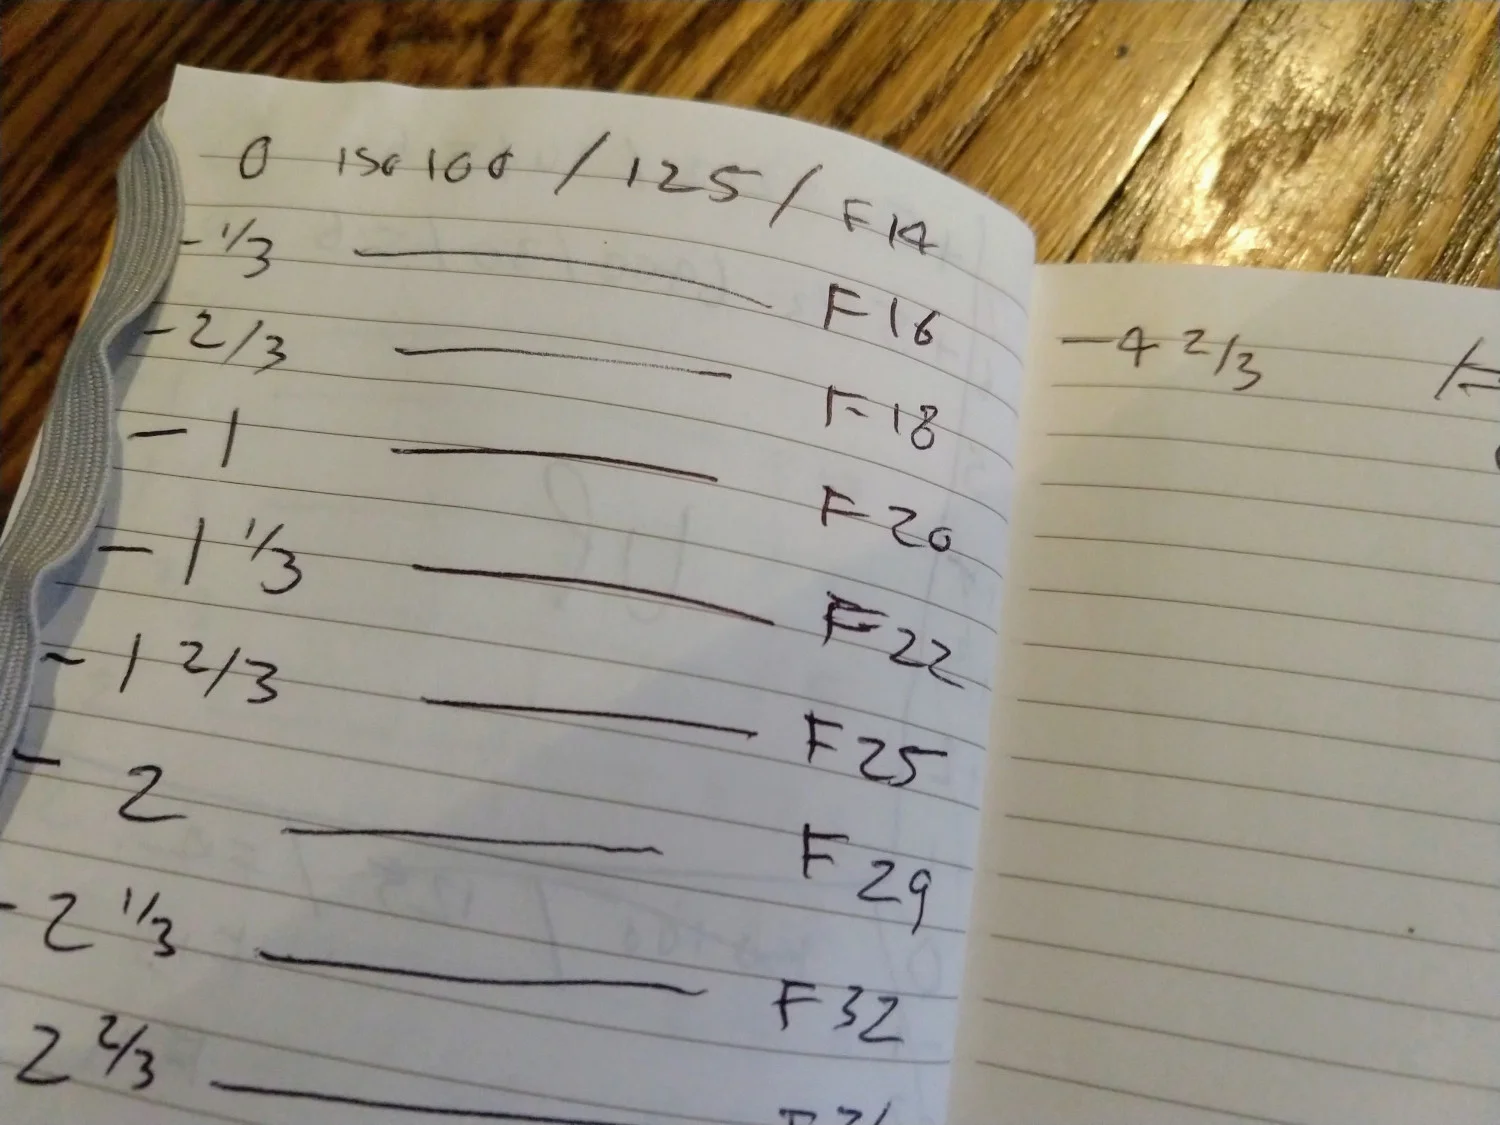 0 ISO 100 / 125 / F14
- 1/3 —— F16
- 2/3 —— F18
- 1 —— F20
- 1 1/3 —— F22
- 1 2/3 —— F25
- 2 —— F29
- 2 1/3 —— F32
2 2/3 ——
- 4 2/3